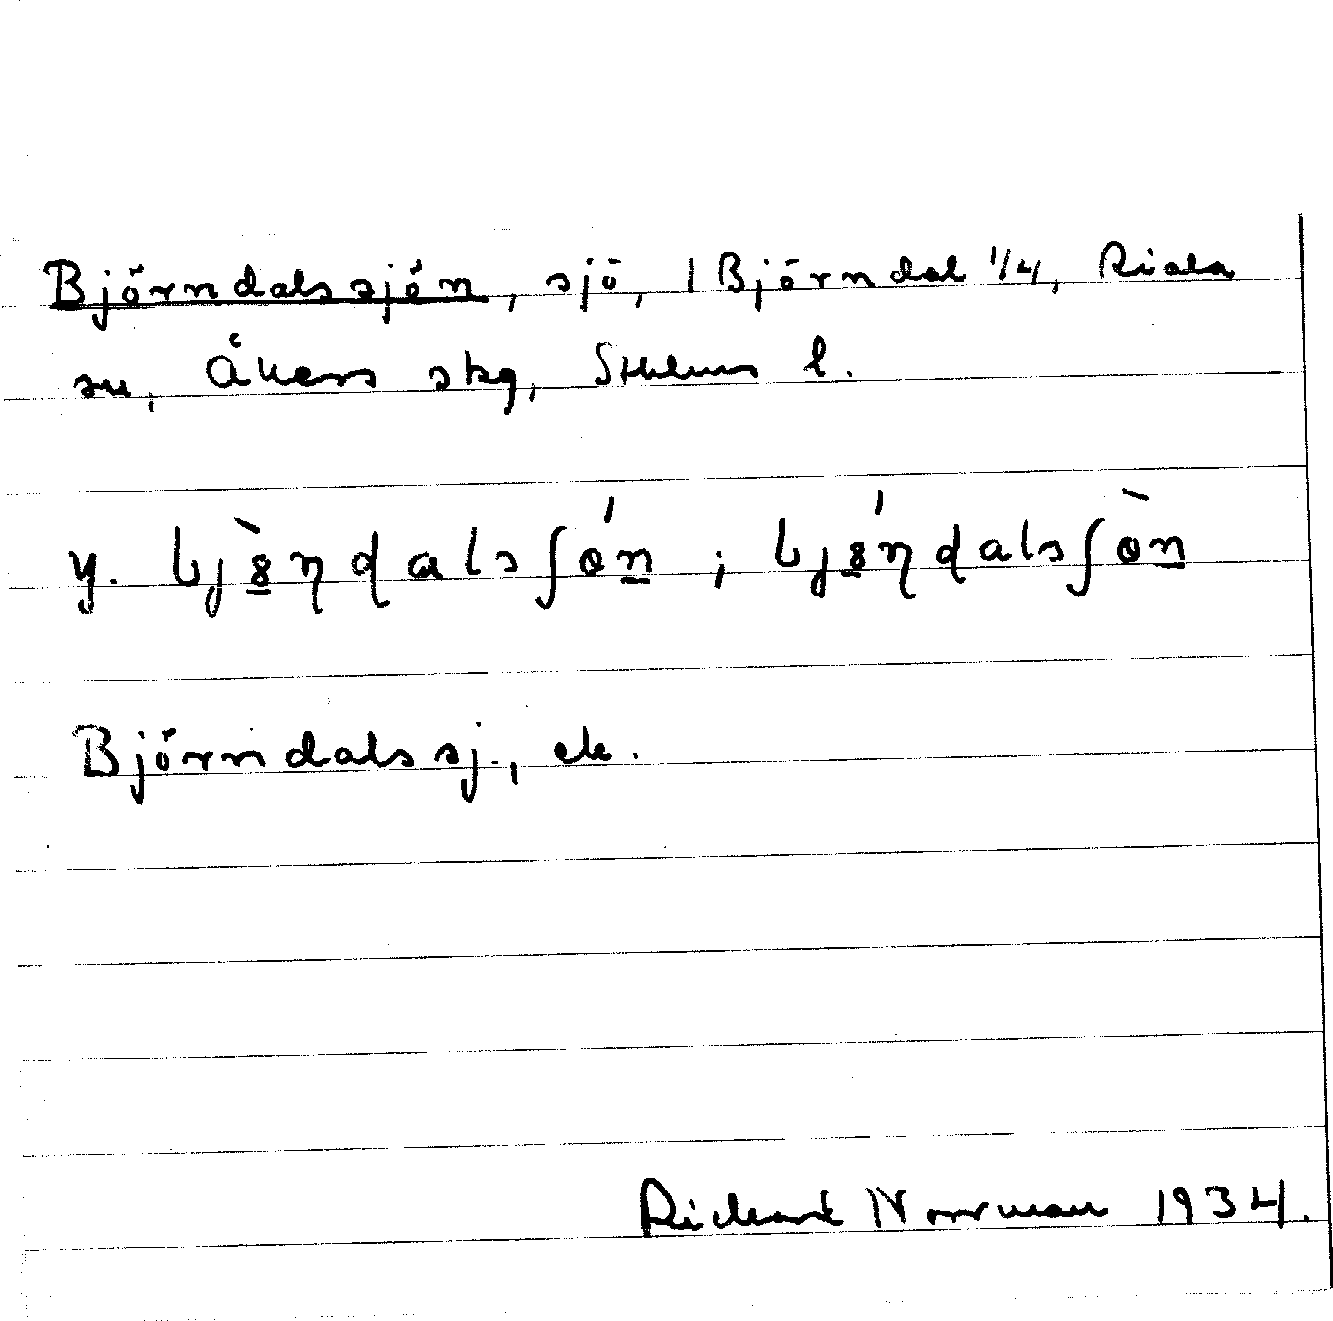 Björndalssjön, sjö, 1 Björndal 1/4, Riala
sn, Åkers skg, Sthlms l.
y. bjö̀ṇḍalsʃön ; bjö́ṇḍalsʃön
Björndalssj., ek.
Richard Norrman 1934.